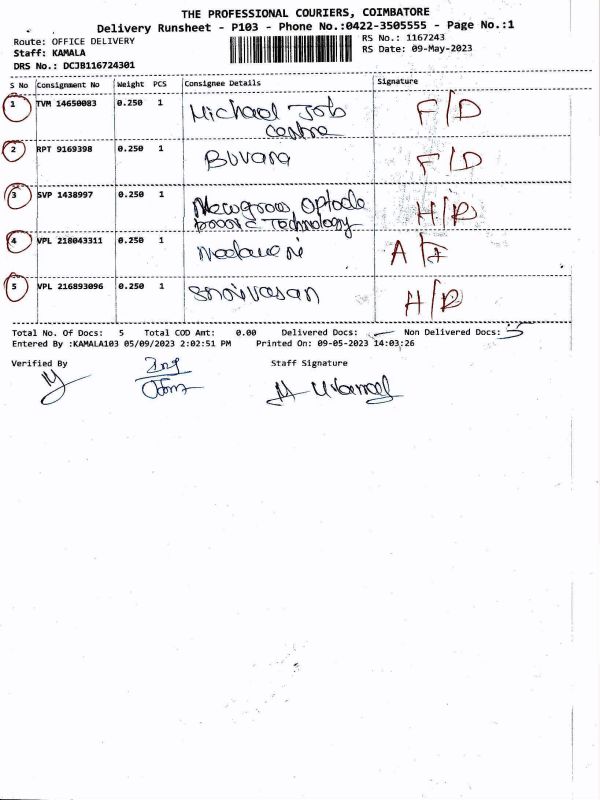 THE PROFESSIONAL COURIERS, COIMBATORE
Delivery Runsheet - P103 - Phone No.:0422-3505555 - Page No.:1
Route: OFFICE DELIVERY
RS No.: 1167243
Staff: KAMALA
RS Date: 09-May-2023
DRS No.: DCJB116724301
S No Consignment No Weight PCS Consignee Details Signature
1 TVM 14650083 0.250 1 Michael Job F/D
centre
2 RPT 9169398 0.250 1 Buvana F/D
3 SVP 1438997 0.250 1 H/R
Technology
4 VPL 218043311 0.250 1 A
5 VPL 216893096 0.250 1 Srnivasan H/R
Total No. Of Docs: 5 Total COD Amt: 0.00 Delivered Docs: — Non Delivered Docs: 5
Entered By :KAMALA103 05/09/2023 2:02:51 PM Printed On: 09-05-2023 14:03:26
Verified By Staff Signature